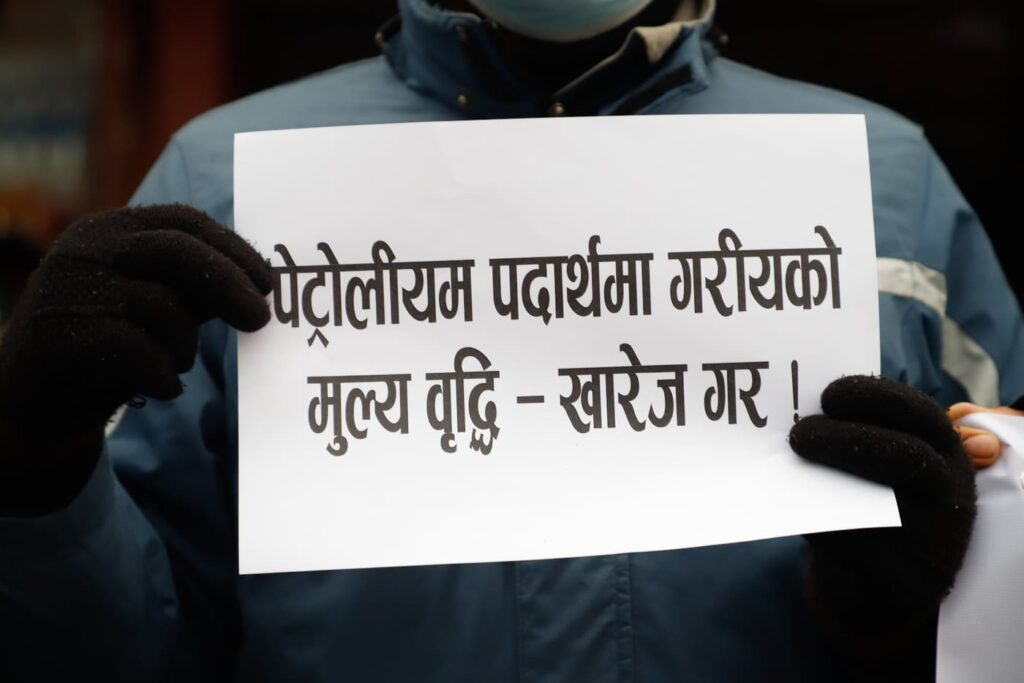 पेट्रोलीयम पदार्थमा गरीयको
मुल्य वृद्धि – खारेज गर !